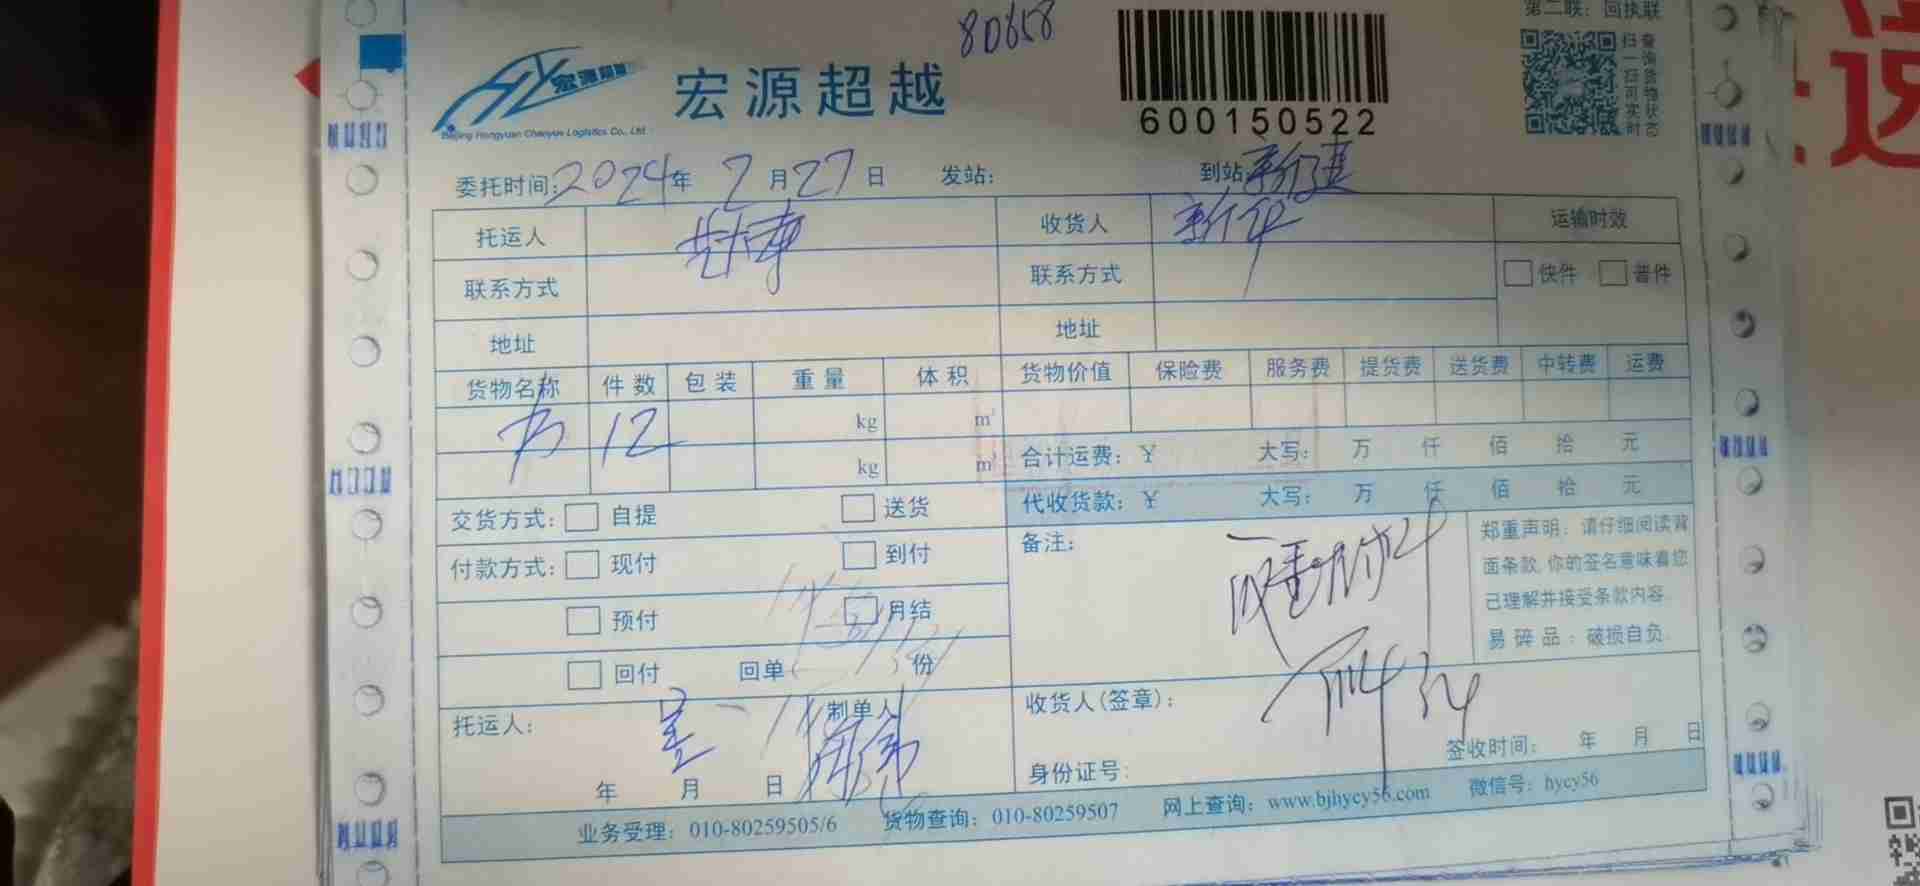 80658
第二联：回执联
宏源超越
Beijing Hongyuan Chaoyue Logistics Co., Ltd
宏源超越
600150522
扫一扫可实时
查询货物状态
委托时间：2024年 2月27日 发站： 到站：新疆
托运人 收货人 新华 运输时效
联系方式 联系方式 快件 普件
地址 地址
货物名称 件数 包装 重量 体积 货物价值 保险费 服务费 提货费 送货费 中转费 运费
书 12 kg m³
kg m³
合计运费：￥ 大写： 万 仟 佰 拾 元
代收货款：￥ 大写： 万 仟 佰 拾 元
交货方式： 自提 送货
付款方式： 现付 到付
预付 月结
回付 回单 份
备注：
郑重声明：请仔细阅读背
面条款,你的签名意味着您
己理解并接受条款内容.
易碎品：破损自负.
托运人： 制单人
年 月 日
收货人(签章)：
签收时间： 年 月 日
身份证号：
业务受理：010-80259505/6 货物查询：010-80259507 网上查询：www.bjhycy56.com 微信号：hycy56